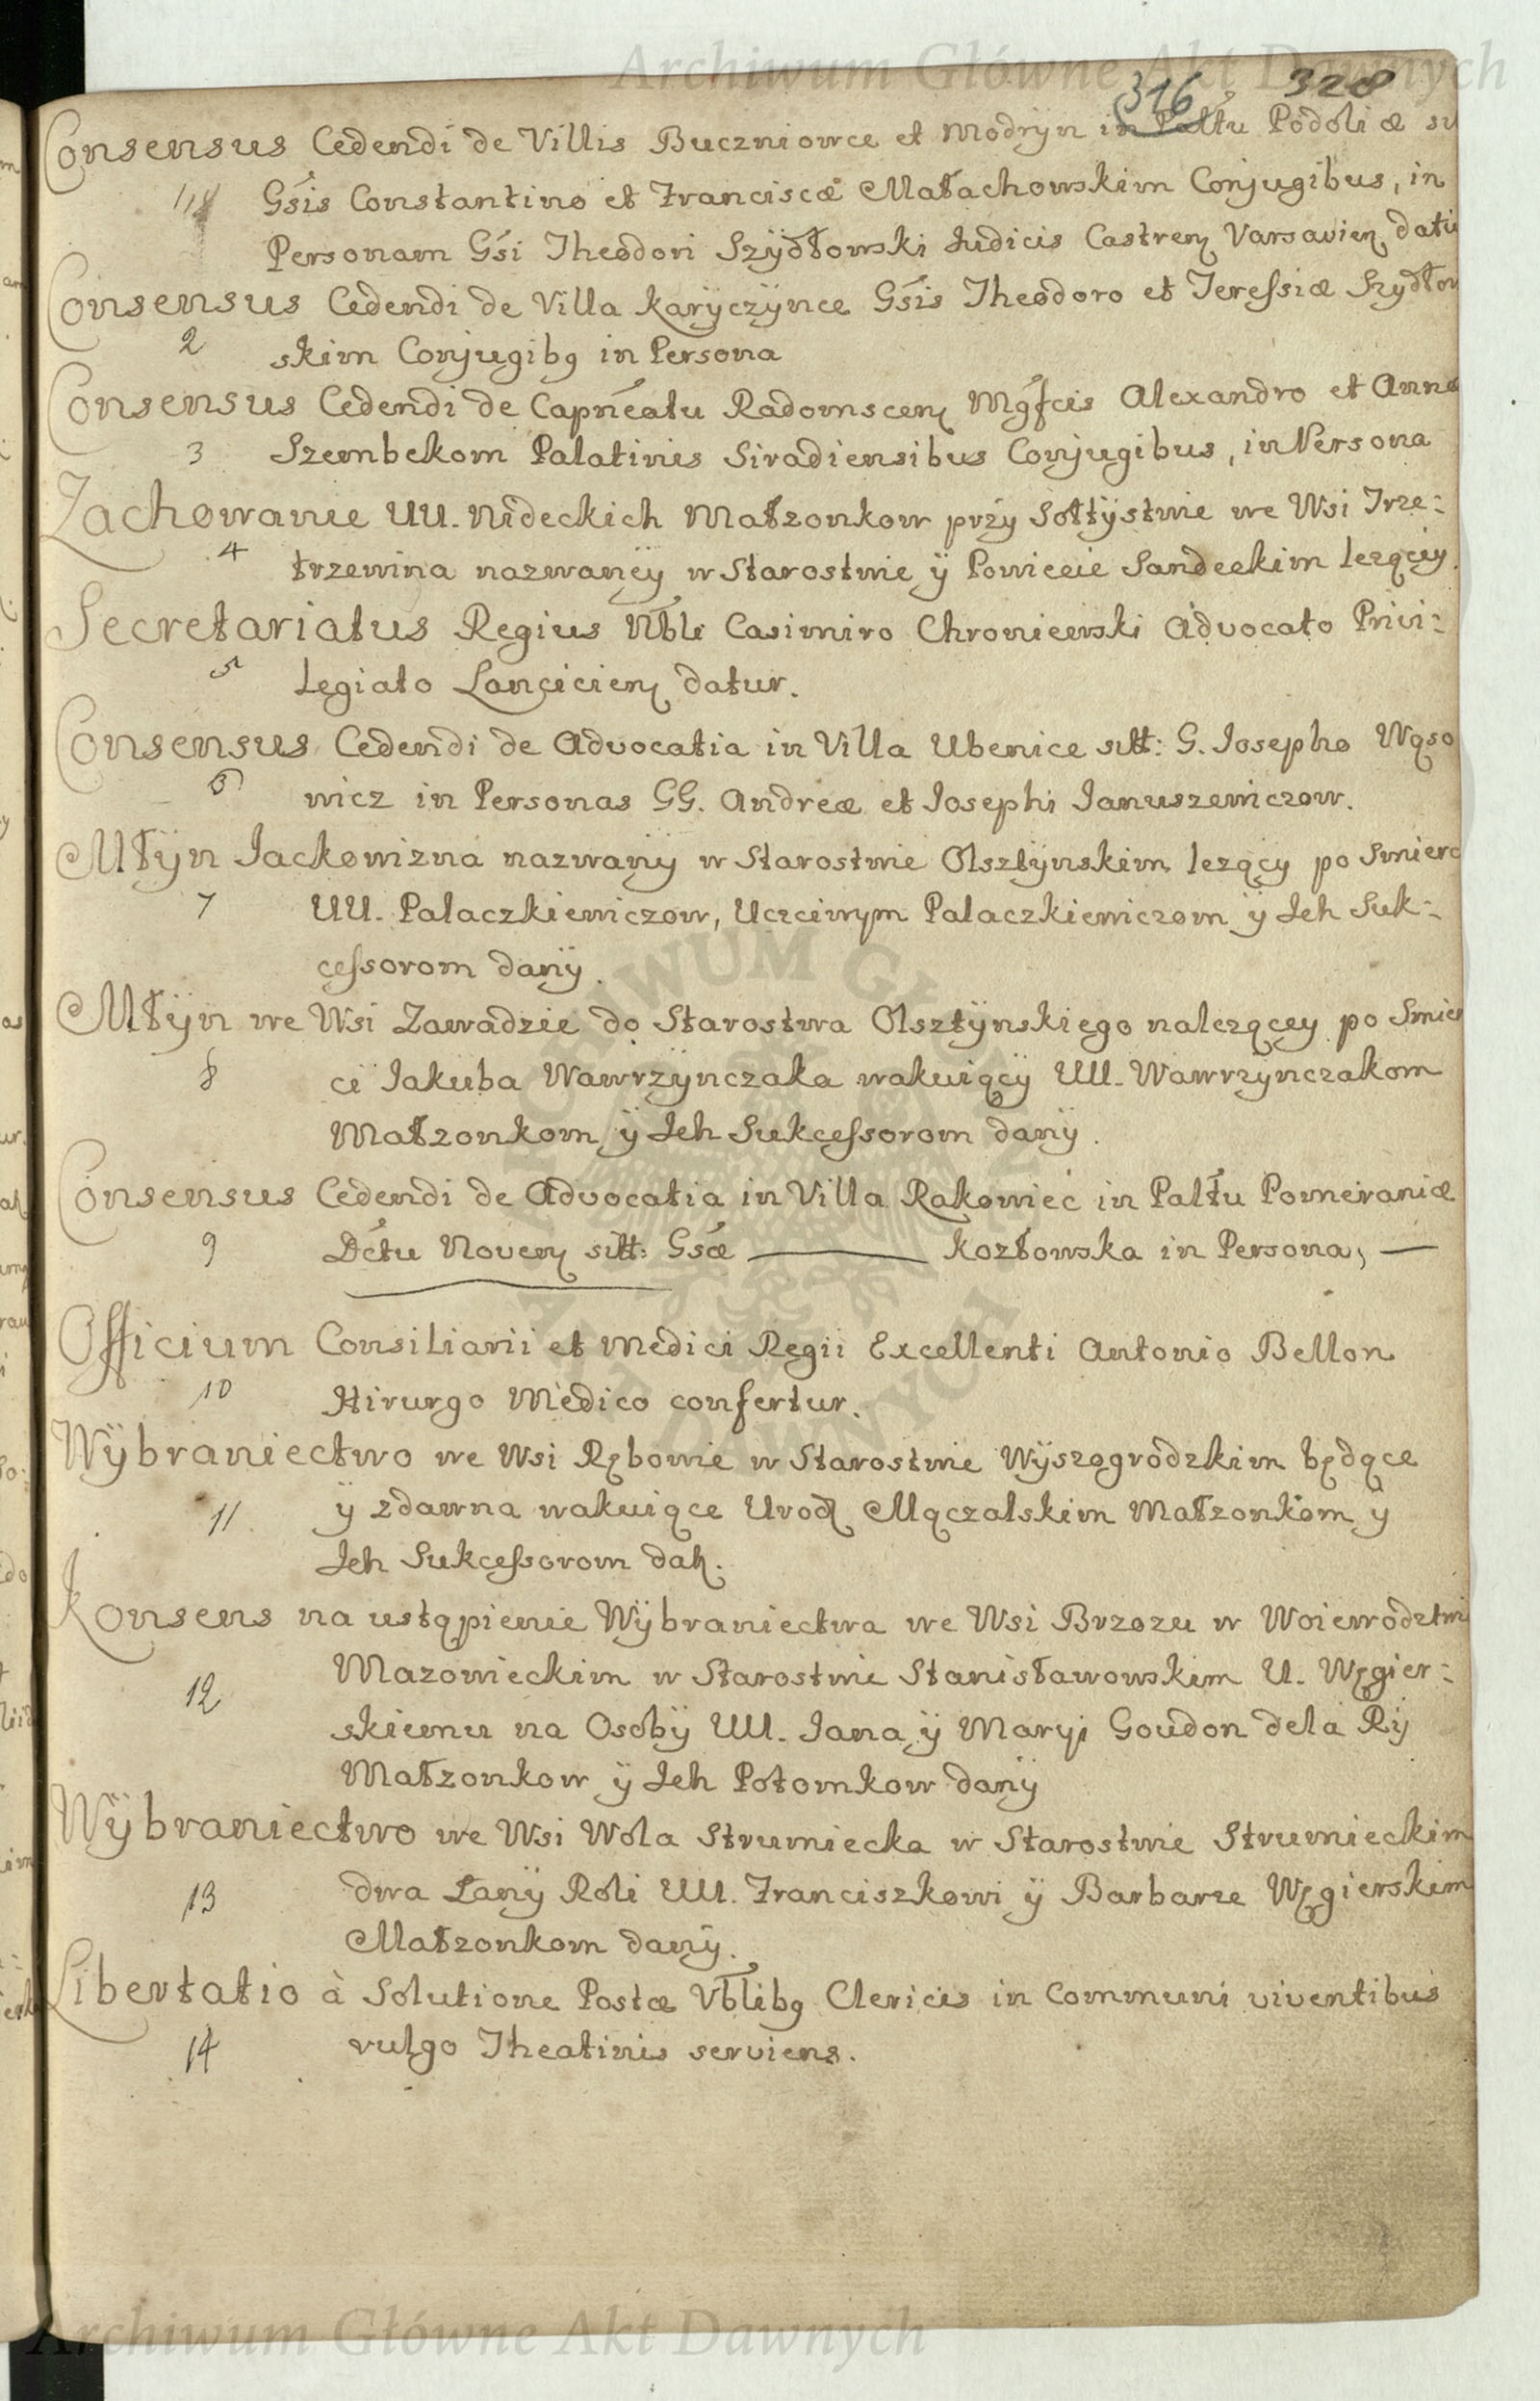 Archiwum Główne Akt Dawnych
316 328
Consensus Cedendi de Villis Buczniowce et Modryn in Paltu Podoliæ
Gsis Constantino et Franciscæ Małachowskim Conjugibus, in
Personam Gsi Theodori Szydłowski Judicis Castren Varsavien
Consensus Cedendi de Villa Karyczÿnce Gsis Theodoro et Teressiæ Szydłow
2 skim Conjugibq in Persona
Consensus Cedendi de Capnéatu Radomscen Mgfcis Alexandro et Annæ
3 Szembekom Palatinis Siradiensibus Conjugibus, in Persona
Zachowanie UU. Nideckich Małzonkow przÿ Sołtÿstwie we Wsi Trze:
4 trzewina nazwanÿ w Starostwie ÿ Powiecie Sandeckim lezącÿ
Secretariatus Regius Nbli Casimiro Chroniewski Advocato Privi:
5 legiato Lancicien datur.
Consensus Cedendi de Advocatia in Villa Ubenice sitt: G. Josepho Wąso
6 wicz in Personas GG. Andreæ et Josephi Januszewiczow.
Młÿn Jackowizna nazwanÿ w Starostwie Olsztÿnskim lezący po Smierc
7 UU. Palaczkiewiczow, Uczciwym Palaczkiewiczom ÿ Jch Suk:
cessorom danÿ.
Młÿn we Wsi Zawadzie do Starostwa Olsztÿnskiego nalezącey po Smier
8 ci Jakuba Wawrzÿnczaka wakuiącÿ UU. Wawrzÿnczakom
Małzonkom ÿ Jch Sukcessorom danÿ.
Consensus Cedendi de Advocatia in Villa Rakowiec in Paltu Pomeraniæ
9 Dctu Noven sitt: Gsæ ——— Kozłowska in Persona, —
Officium Consiliarii et Medici Regii Excellenti Antonio Bellon
10 Hirurgo Medico confertur.
Wÿbraniectwo we Wsi Rębowie w Starostwie Wÿszogrodzkim będące
11 ÿ zdawna wakuiące Urodz Mączalskim Małzonkom ÿ
Jch Sukcessorom dan.
Konsens na ustąpienie Wÿbraniectwa we Wsi Brzozu w Woiewodztwi
12 Mazowieckim w Starostwie Stanisławowskim U. Węgier:
skiemu na Osobÿ UU. Jana ÿ Maryi Goudon dela Rÿ
Małzonkow ÿ Jch Potomkow danÿ
Wÿbraniectwo we Wsi Wola Strumiecka w Starostwie Strumieckim
13 dwa Łanÿ Roli UU. Franciszkowi ÿ Barbarze Węgierskim
Małzonkom danÿ.
Libertatio à Solutione Postæ Vblibq Clericis in Communi viventibus
14 vulgo Theatinis serviens.
Archiwum Główne Akt Dawnych